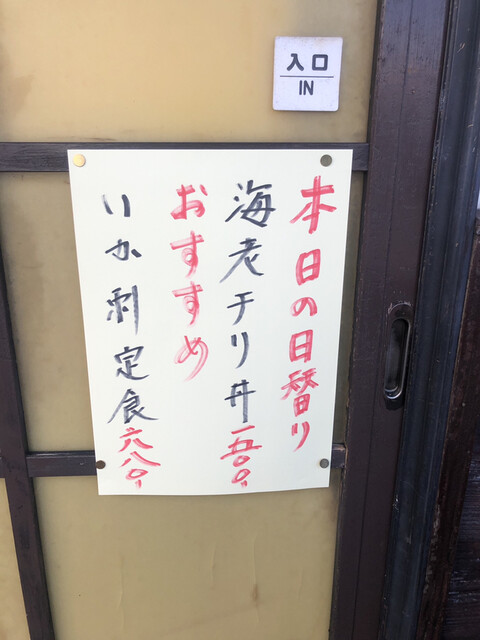 入口
IN
本日の日替り
海老チリ丼五〇〇
おすすめ
いか刺定食六八〇